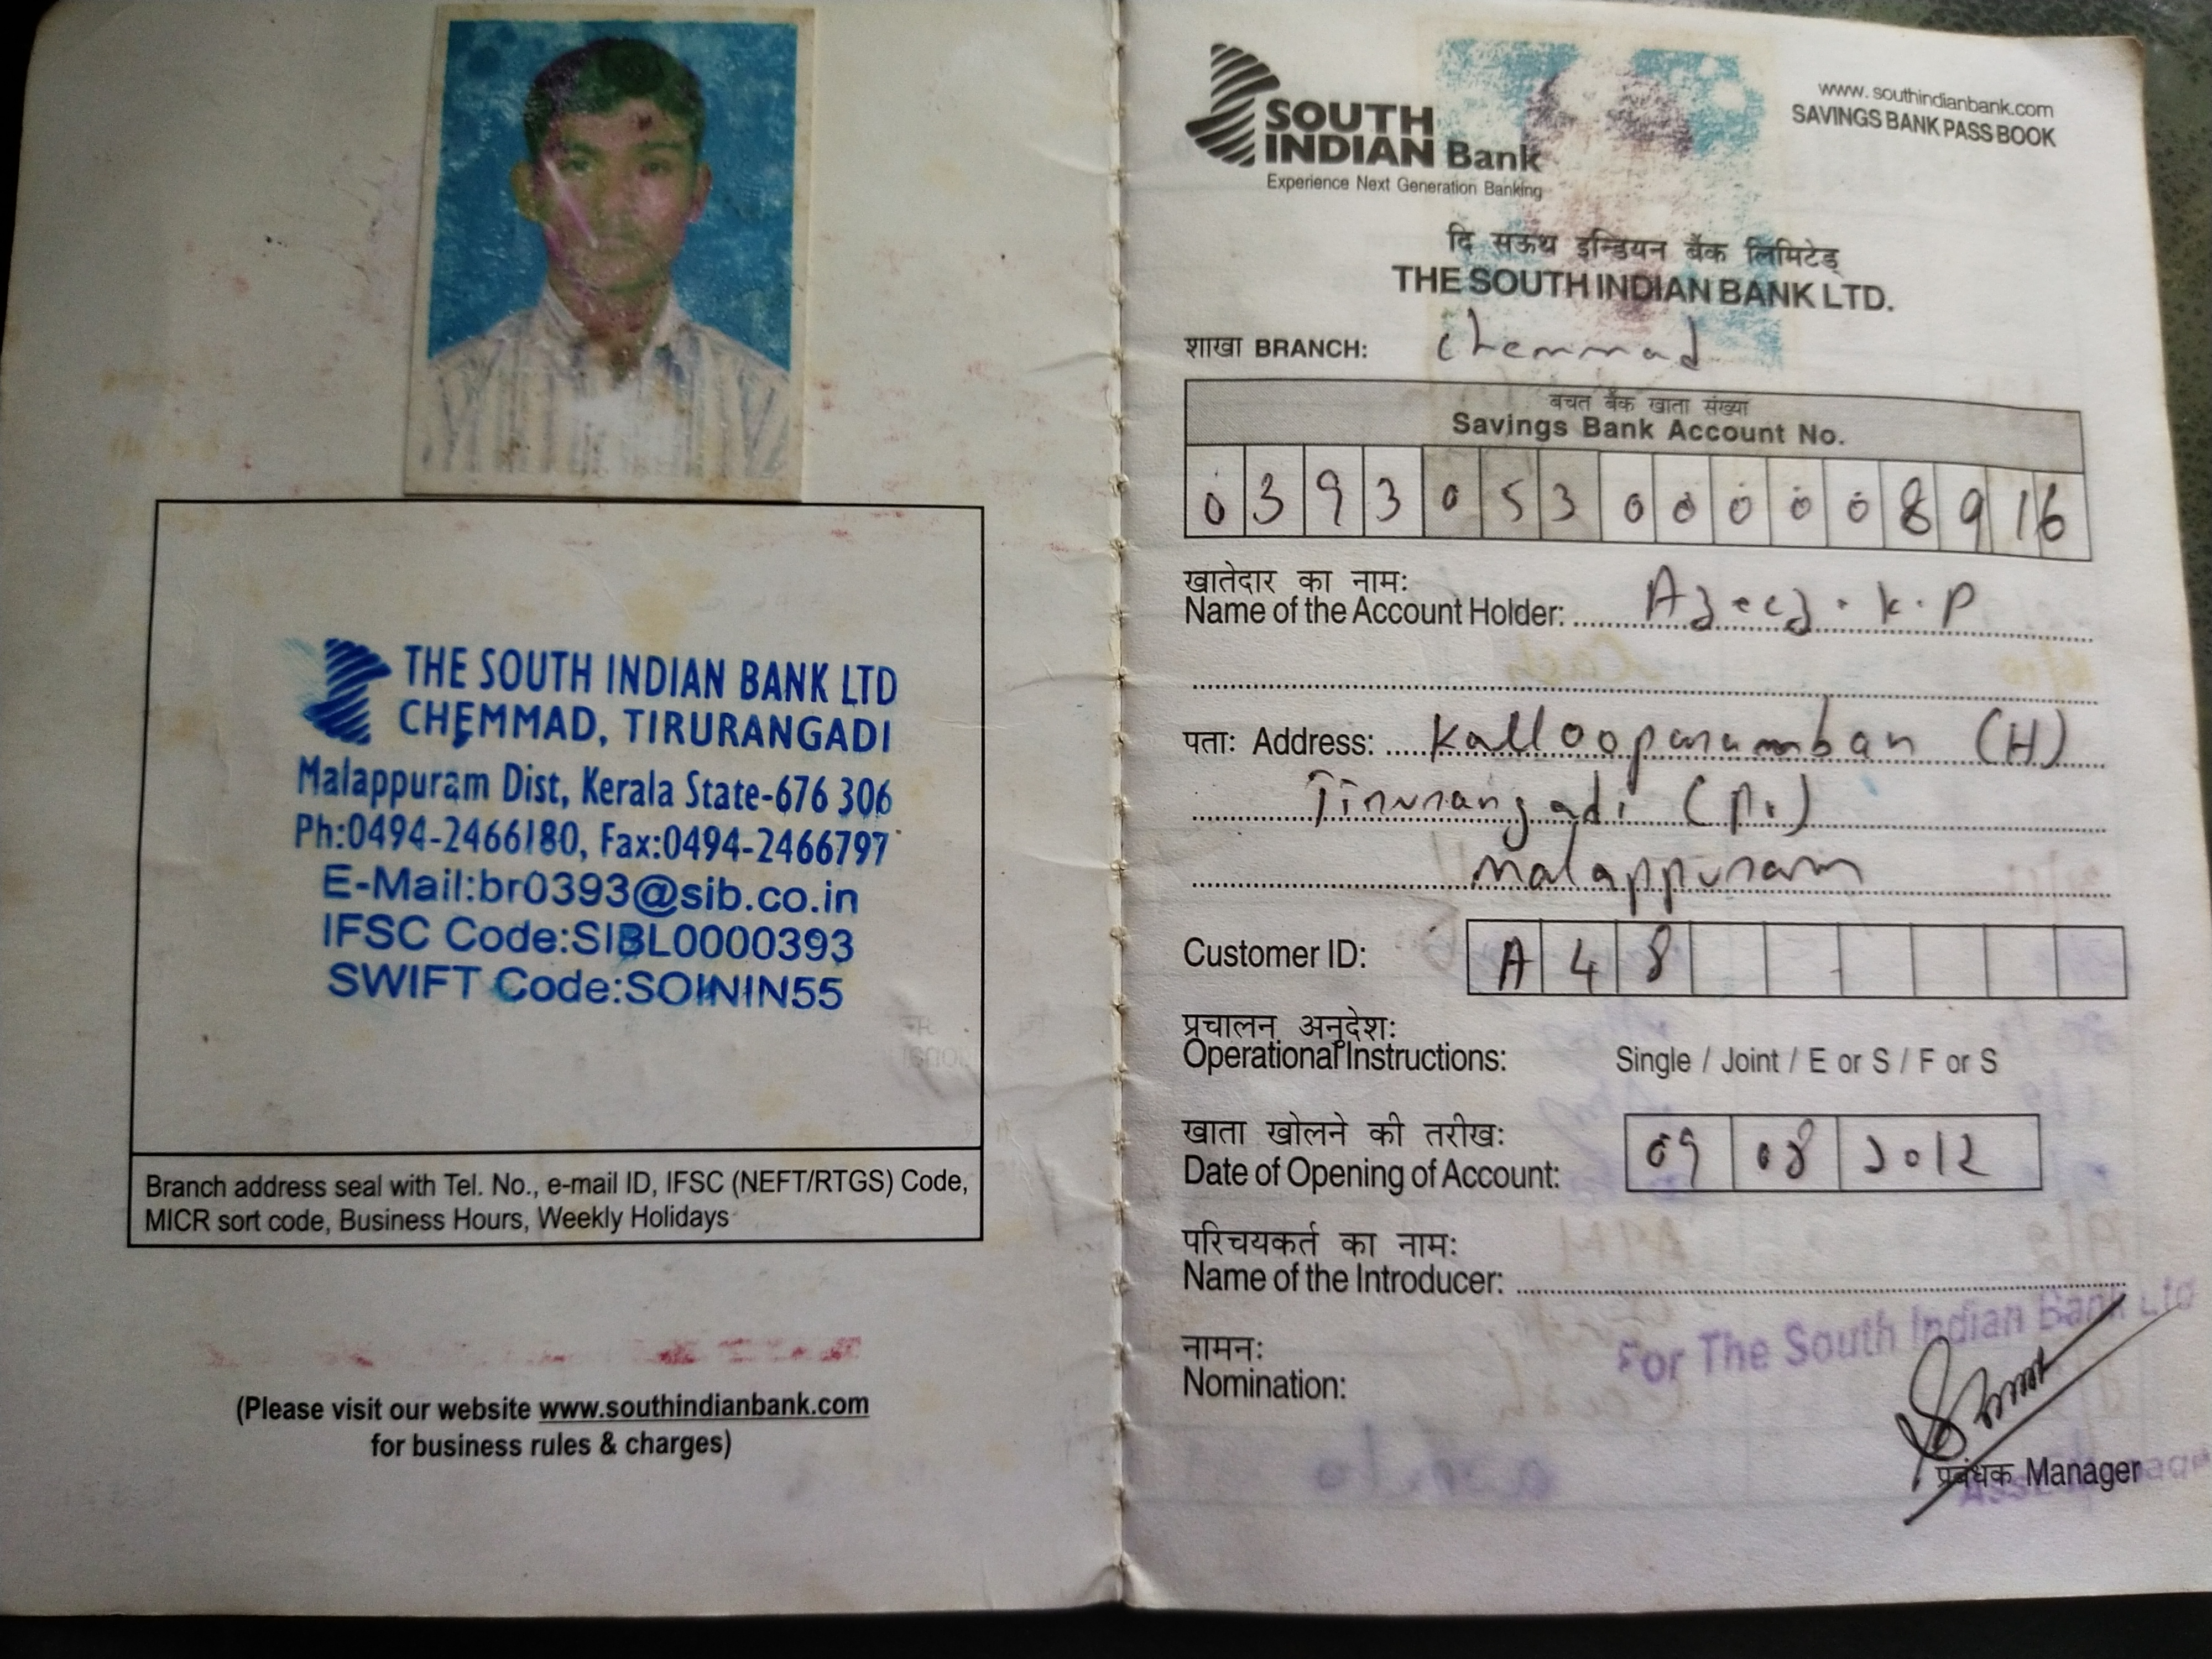 THE SOUTH INDIAN BANK LTD
CHEMMAD, TIRURANGADI
Malappuram Dist, Kerala State-676 306
Ph:0494-2466180, Fax:0494-2466797
E-Mail:br0393@sib.co.in
IFSC Code:SIBL0000393
SWIFT Code:SOININ55
Branch address seal with Tel. No., e-mail ID, IFSC (NEFT/RTGS) Code,
MICR sort code, Business Hours, Weekly Holidays
(Please visit our website www.southindianbank.com
for business rules & charges)
SOUTH
INDIAN Bank
Experience Next Generation Banking
www.southindianbank.com
SAVINGS BANK PASS BOOK
दि सऊथ इन्डियन बैंक लिमिटेड्
THE SOUTH INDIAN BANK LTD.
शाखा BRANCH: Chemmad
बचत बैंक खाता संख्या
Savings Bank Account No.
0 3 9 3 0 5 3 0 0 0 0 0 8 9 1 6
खातेदार का नाम:
Name of the Account Holder: Azeez. K. P
पता: Address: Kallooparamban (H)
Tirurangadi (Po)
Malappuram
Customer ID: A 4 8
प्रचालन अनुदेश:
Operational Instructions: Single / Joint / E or S / F or S
खाता खोलने की तरीख:
Date of Opening of Account: 09 08 2012
परिचयकर्त का नाम:
Name of the Introducer:
For The South Indian Bank Ltd
नामन:
Nomination:
प्रबंधक Manager